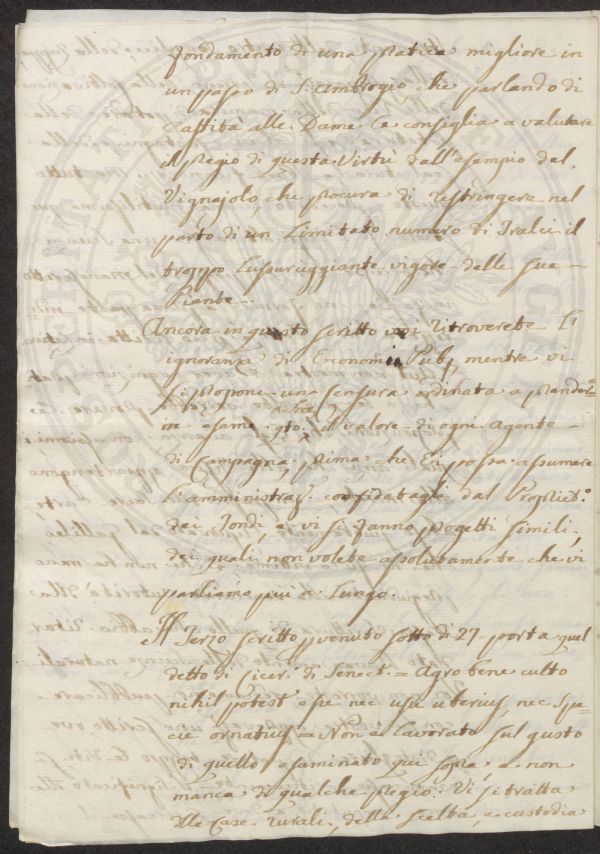 fondamento di una pratica migliore in
un passo di S. Ambrogio che parlando di
Castità alle Dame le consiglia a valutare
il pregio di questa Virtù dall'esempio del
Vignajolo, che procura di restringere nel
parto di un Limitato numero di Tralci il
troppo Lussureggiante vigore delle sue
Piante.
Ancora in questo scritto voi ritroverete l'
ignoranza di Economia Pub. mentre vi
si propone una Censura ordinata a prender
in esame il valore di ogni agente
di Campagna, prima che Ei possa assumere
l'amministraz. confidatagli dal Propriet.o
dei Fondi, e vi si fanno progetti simili,
dei quali non volete assolutamente che vi
parliamo più a Lungo.
Il Terzo scritto pervenuto sotto di 27 porta quel
detto di Cicer. di Senect. = Agro bene culto
nihil potest esse nec usu uberius, nec spe-
cie ornatius = Non è Lavorato sul gusto
di quello esaminato qui sopra e non
manca di qualche pregio: Vi si tratta
delle Case rurali, della scelta, e custodia